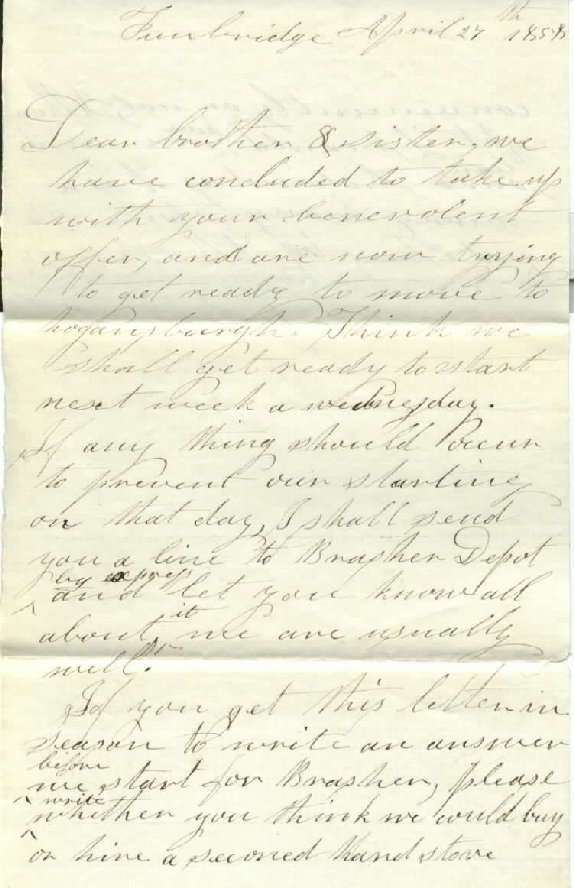 Tunbridge April 27th 1858
Dear brother & sister, we
have concluded to take up
with your benevolent
offer, and are now trying
to get ready to move to
hogansburgh. Think we
shall get ready to start
next week a wednesday.
If any thing should occur
to prevent our starting
on that day, I shall send
you a line to Brasher Depot
by express
and let you know all
about it we are usually
well.
If you get this letter in
season to write an answer
before
we start for Brasher, please
write
whether you think we could buy
or hire a seconed hand stove